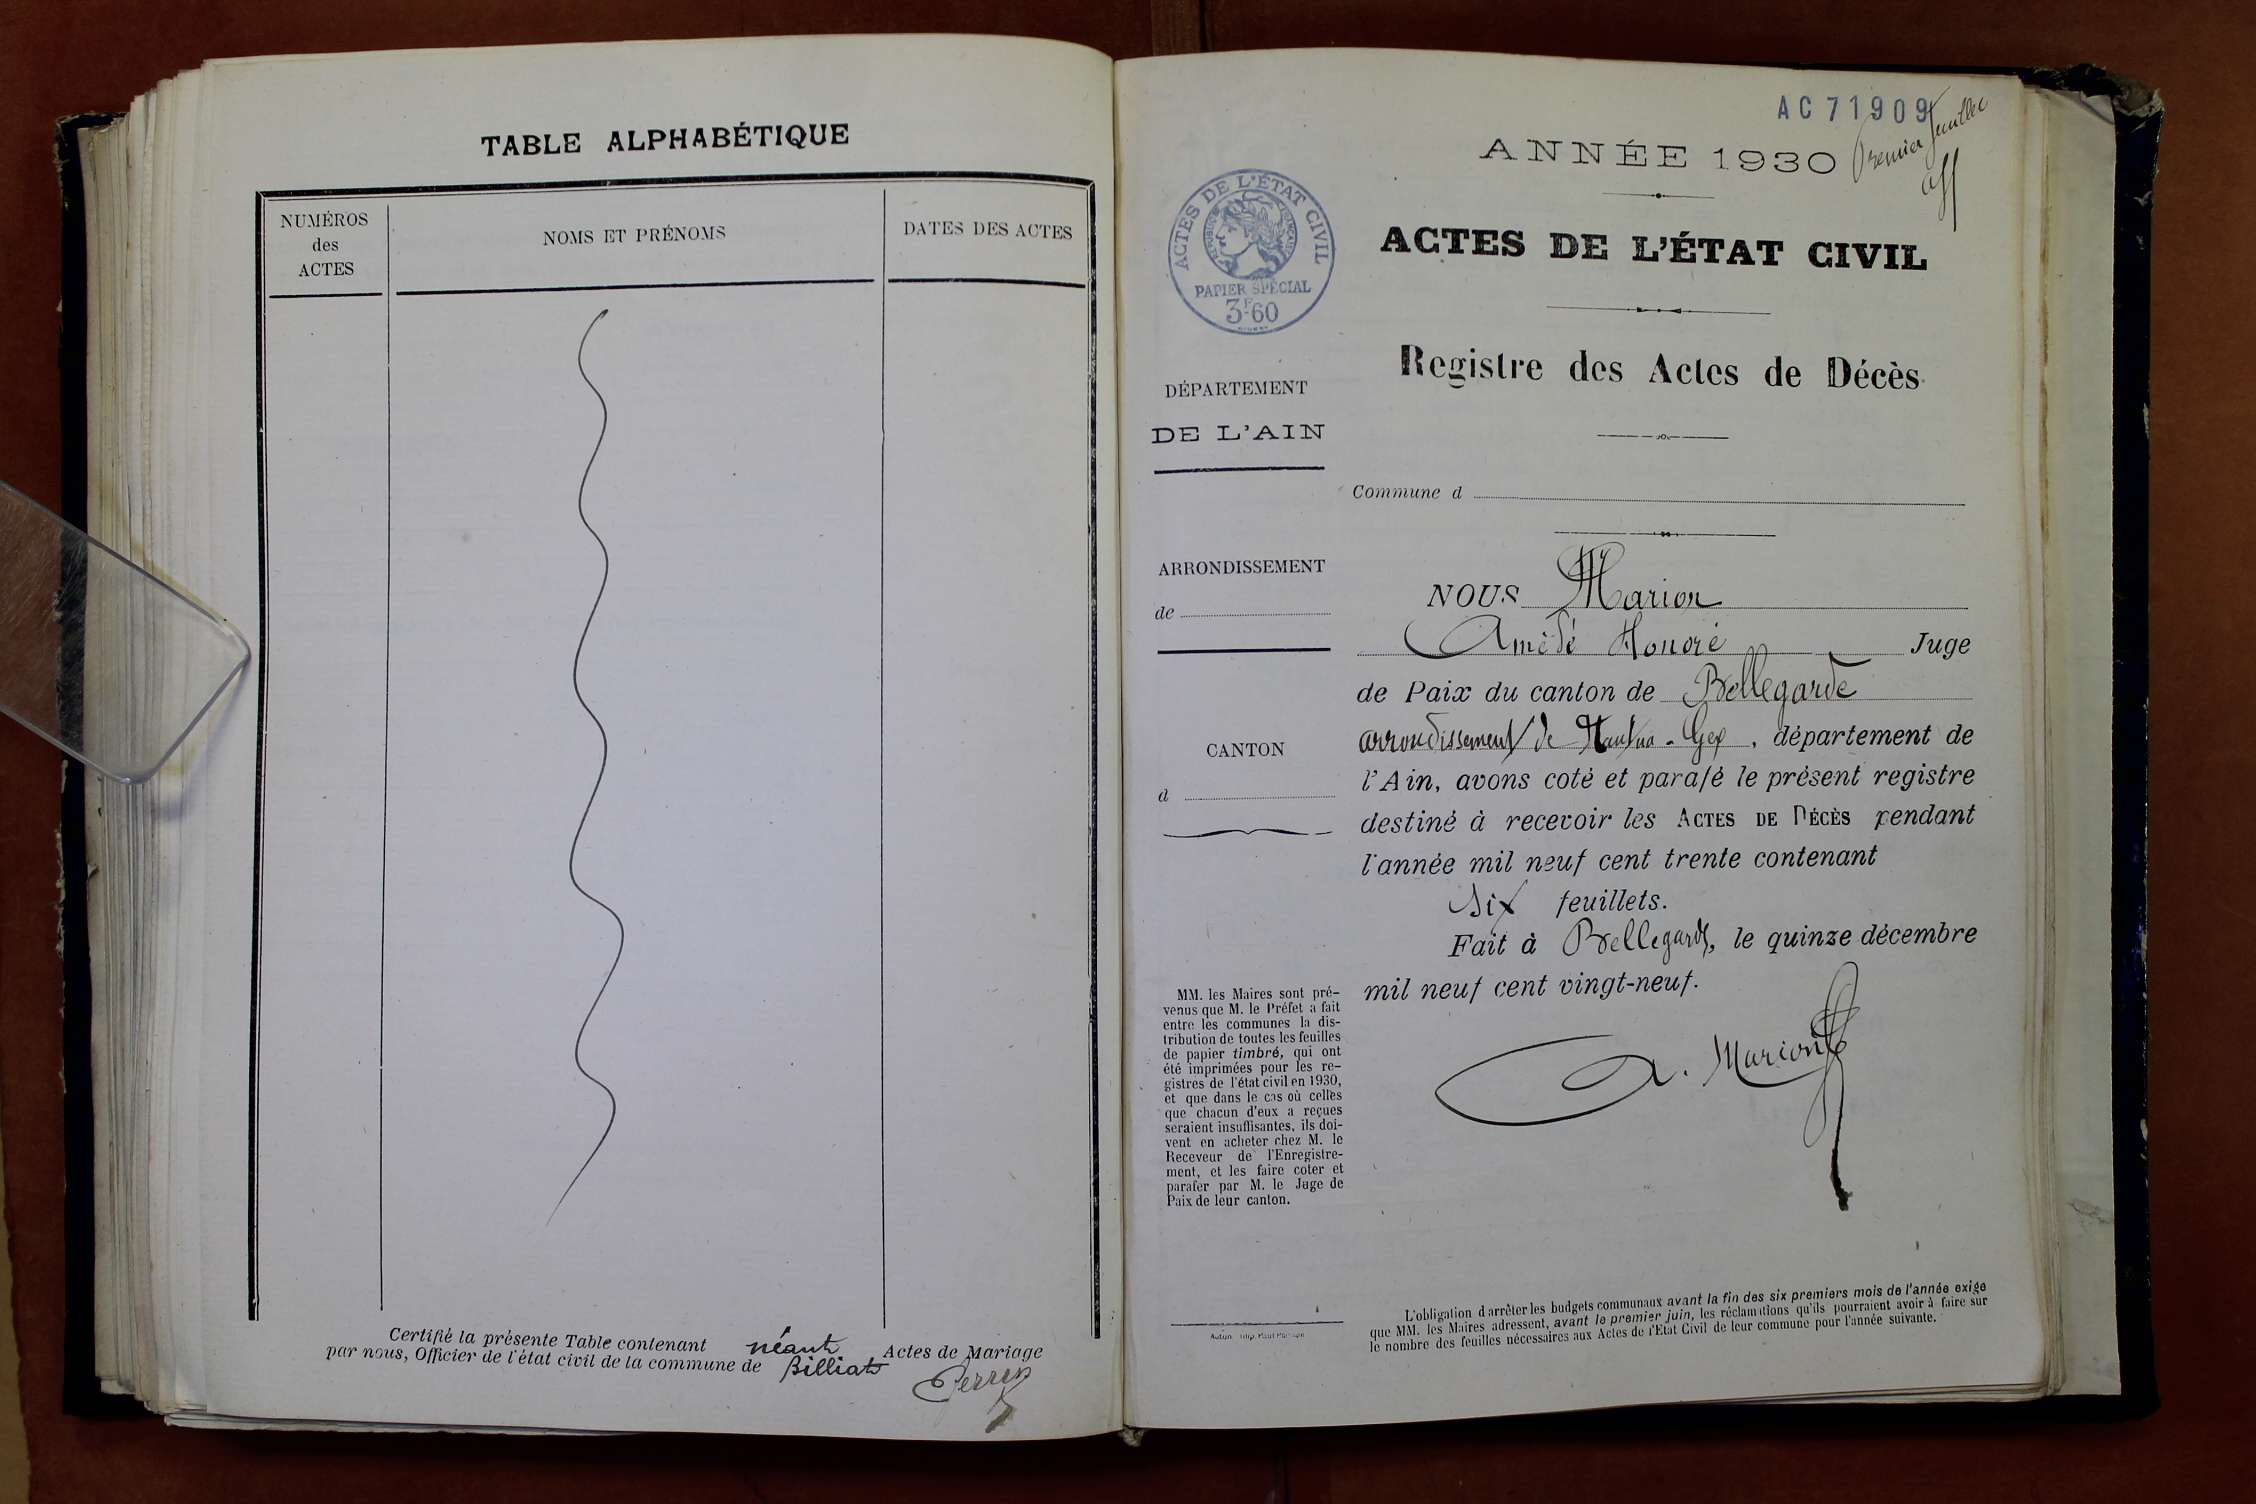 TABLE ALPHABÉTIQUE
NUMÉROS
des
ACTES
NOMS ET PRÉNOMS
DATES DES ACTES
Certifié la présente Table contenant néant Actes de Mariage
par nous, Officier de l'état civil de la commune de Billiat
Perrin
AC 71909
Premier feuillet
ANNÉE 1930
ACTES DE L'ÉTAT CIVIL
RÉPUBLIQUE FRANÇAISE
PAPIER SPÉCIAL
3F60
ACTES DE L'ÉTAT CIVIL
Registre des Actes de Décès
DÉPARTEMENT
DE L'AIN
Commune d
ARRONDISSEMENT
de
CANTON
d
NOUS Marion
Amédé Honoré Juge
de Paix du canton de Bellegarde
arrondissement de Nantua-Gex, département de
l'Ain, avons coté et parafé le présent registre
destiné à recevoir les ACTES DE DÉCÈS pendant
l'année mil neuf cent trente contenant
six feuillets.
Fait à Bellegarde, le quinze décembre
mil neuf cent vingt-neuf.
A. Marion
MM. les Maires sont pré-
venus que M. le Préfet a fait
entre les communes la dis-
tribution de toutes les feuilles
de papier timbré, qui ont
été imprimées pour les re-
gistres de l'état civil en 1930,
et que dans le cas où celles
que chacun d'eux a reçues
seraient insuffisantes, ils doi-
vent en acheter chez M. le
Receveur de l'Enregistre-
ment, et les faire coter et
parafer par M. le Juge de
Paix de leur canton.
Autun. Imp.
L'obligation d'arrêter les budgets communaux avant la fin des six premiers mois de l'année exige
que MM. les Maires adressent, avant le premier juin, les réclamations qu'ils pourraient avoir à faire sur
le nombre des feuilles nécessaires aux Actes de l'Etat Civil de leur commune pour l'année suivante.